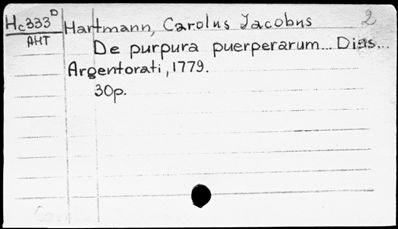 Hc333D Hartmann, Carolus Jacobus 2
AHT De purpura puerperarum... Diss...
Argentorati, 1779.
30p.